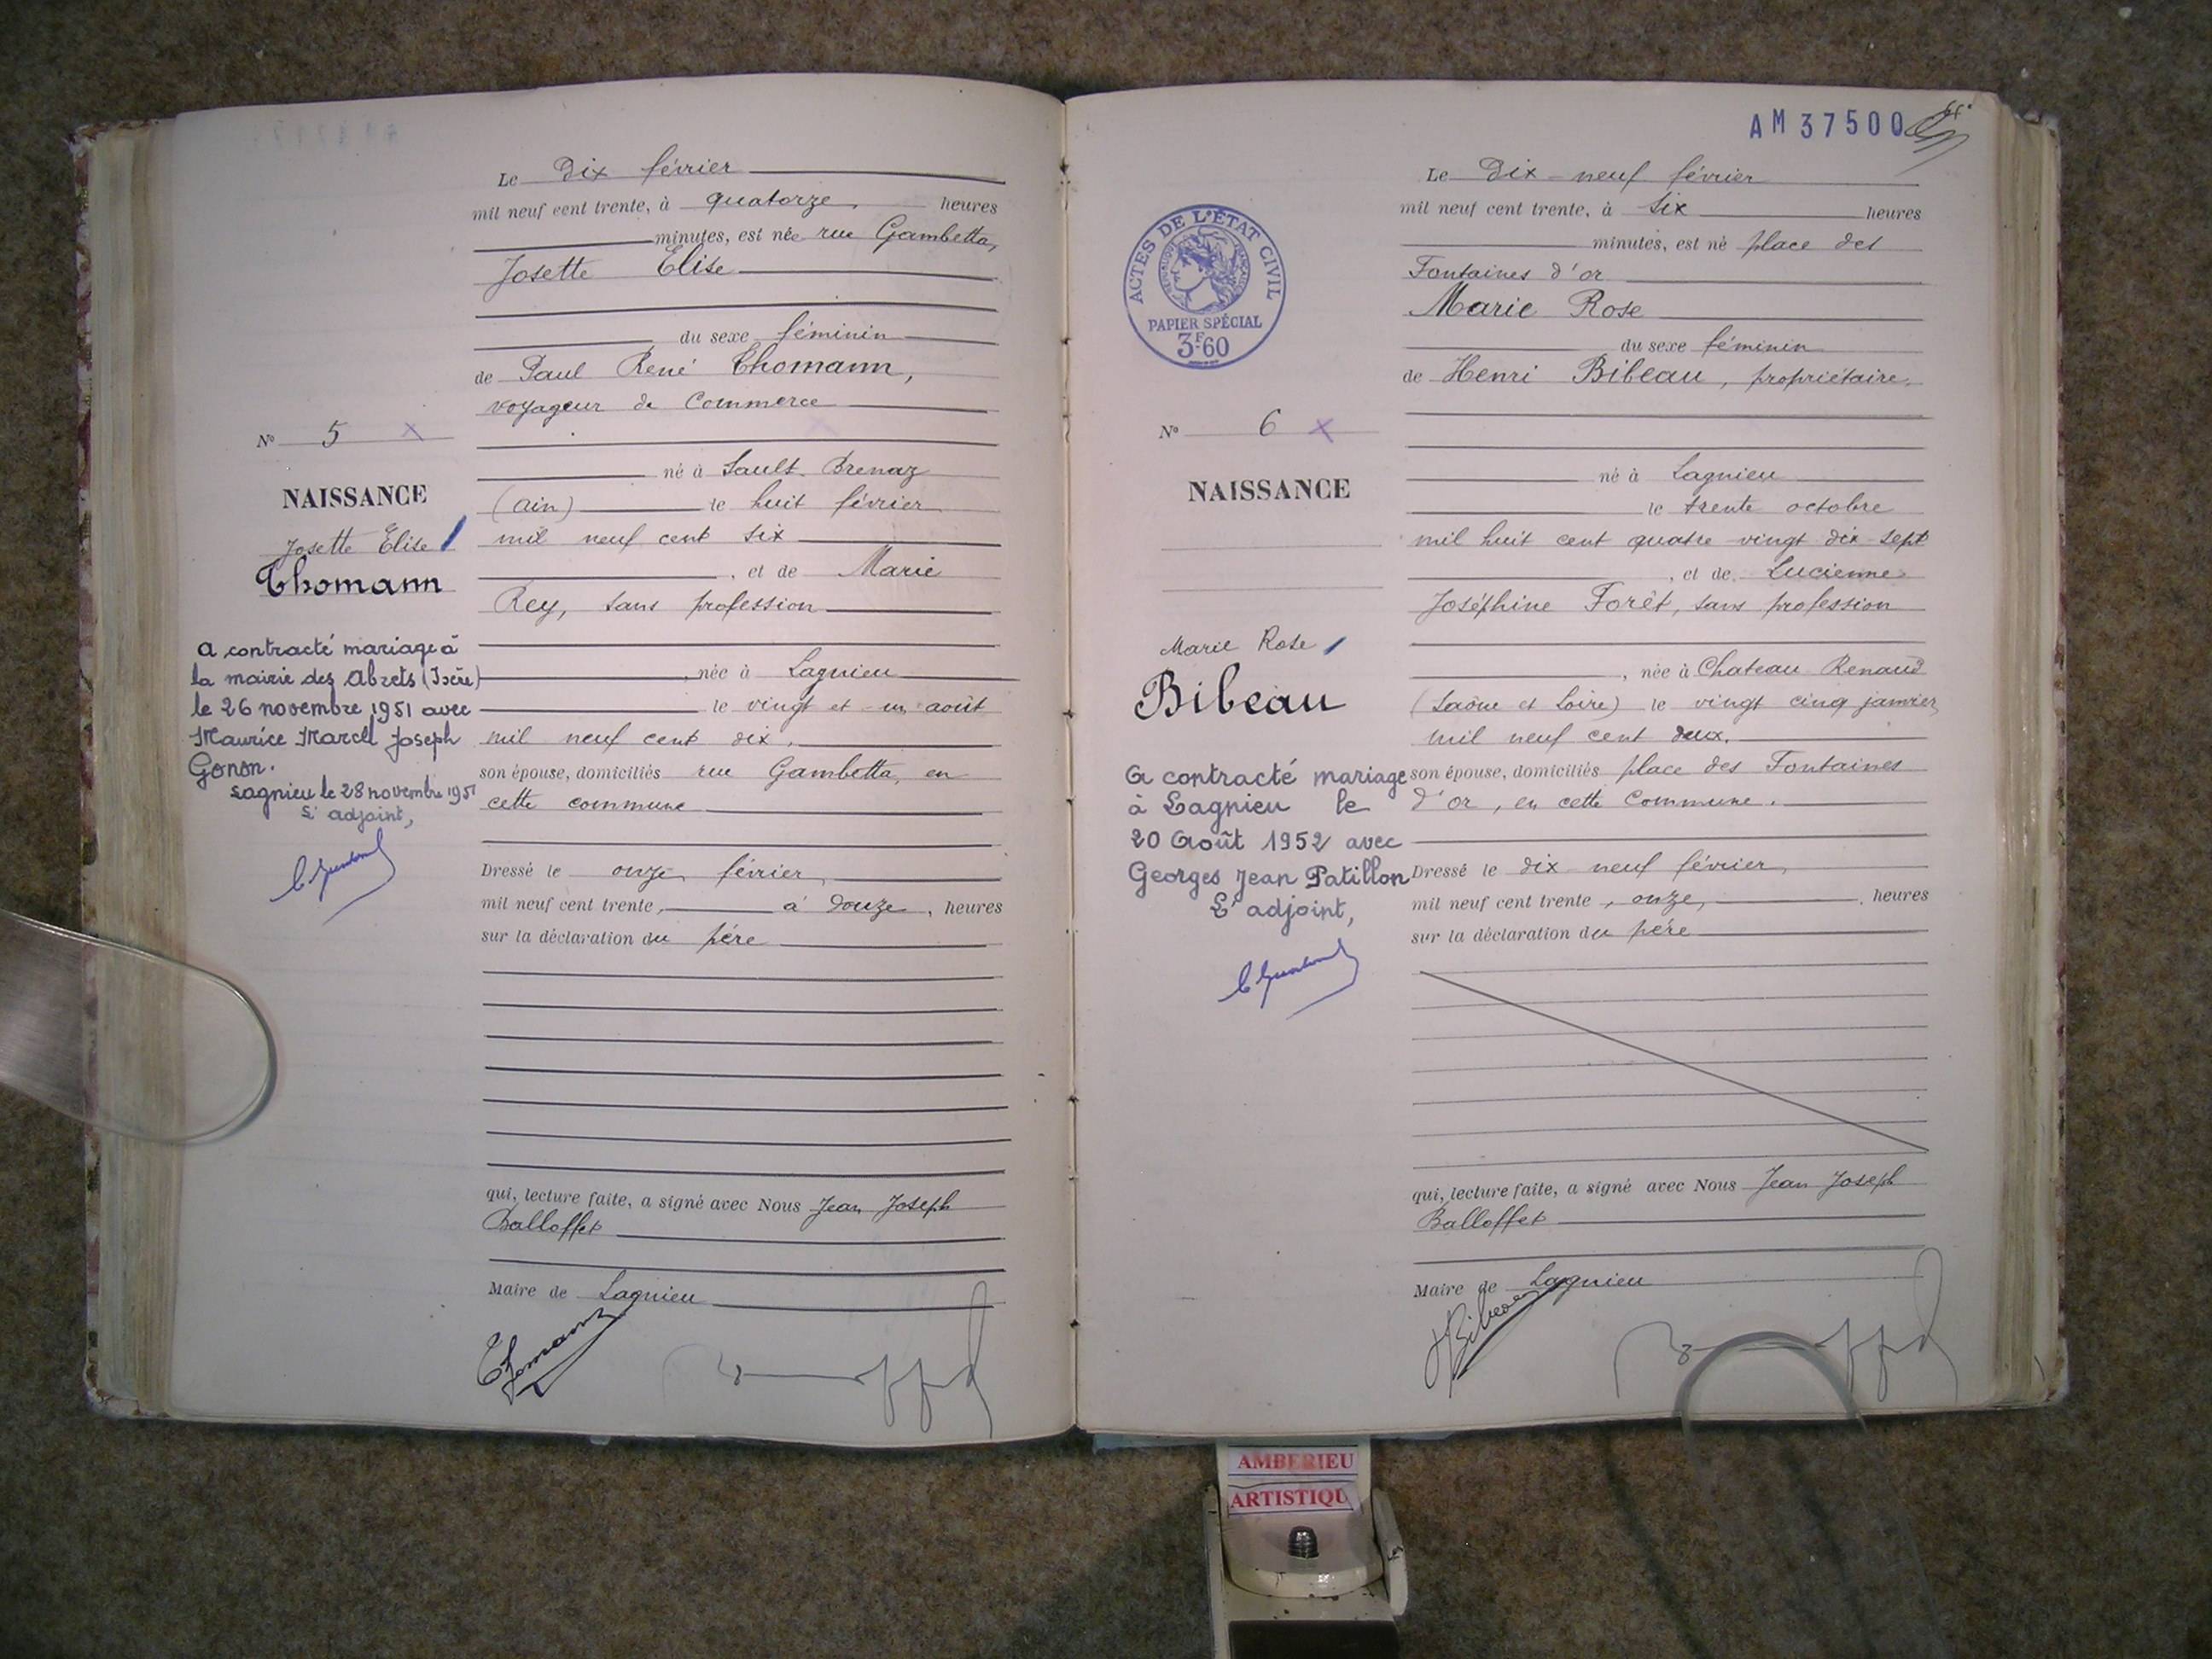 Le Dix février
mil neuf cent trente, à quatorze, heures
minutes, est née rue Gambetta,
Josette Elise
du sexe féminin
de Paul René Thomann,
voyageur de Commerce
né à Sault-Brenaz
(ain) le huit février
mil neuf cent six
, et de Marie
Rey, sans profession
, née à Lagnieu
le vingt et un août
mil neuf cent dix,
son épouse, domiciliés rue Gambetta, en
cette commune
Dressé le onze février,
mil neuf cent trente, à douze, heures
sur la déclaration du père
qui, lecture faite, a signé avec Nous Jean Joseph
Balloffet
Maire de Lagnieu
Thomann
No 5 x
NAISSANCE
Josette Elise
Thomann
a contracté mariage à
la mairie des Abrets (Isère)
le 26 novembre 1951 avec
Maurice Marcel Joseph
Gonon.
Lagnieu le 28 novembre 1951
L'adjoint,
AM 37500
ACTES DE L'ÉTAT CIVIL
RÉPUBLIQUE FRANÇAISE
PAPIER SPÉCIAL
3F.60
Le Dix-neuf février
mil neuf cent trente, à six heures
minutes, est né place des
Fontaines d'or
Marie Rose
du sexe féminin
de Henri Bibeau, propriétaire,
né à Lagnieu
le trente octobre
mil huit cent quatre vingt dix sept
, et de Lucienne
Joséphine Forêt, sans profession
, née à Chateau Renaud
(Saône et Loire) le vingt cinq janvier
mil neuf cent deux,
son épouse, domiciliés place des Fontaines
d'or, en cette Commune.
Dressé le dix neuf février,
mil neuf cent trente, onze, heures
sur la déclaration du père
qui, lecture faite, a signé avec Nous Jean Joseph
Balloffet
Maire de Lagnieu
HBibeau
No 6 x
NAISSANCE
Marie Rose
Bibeau
a contracté mariage
à Lagnieu le
20 Août 1952 avec
Georges Jean Patillon
L'adjoint,
AMBERIEU
ARTISTIQU